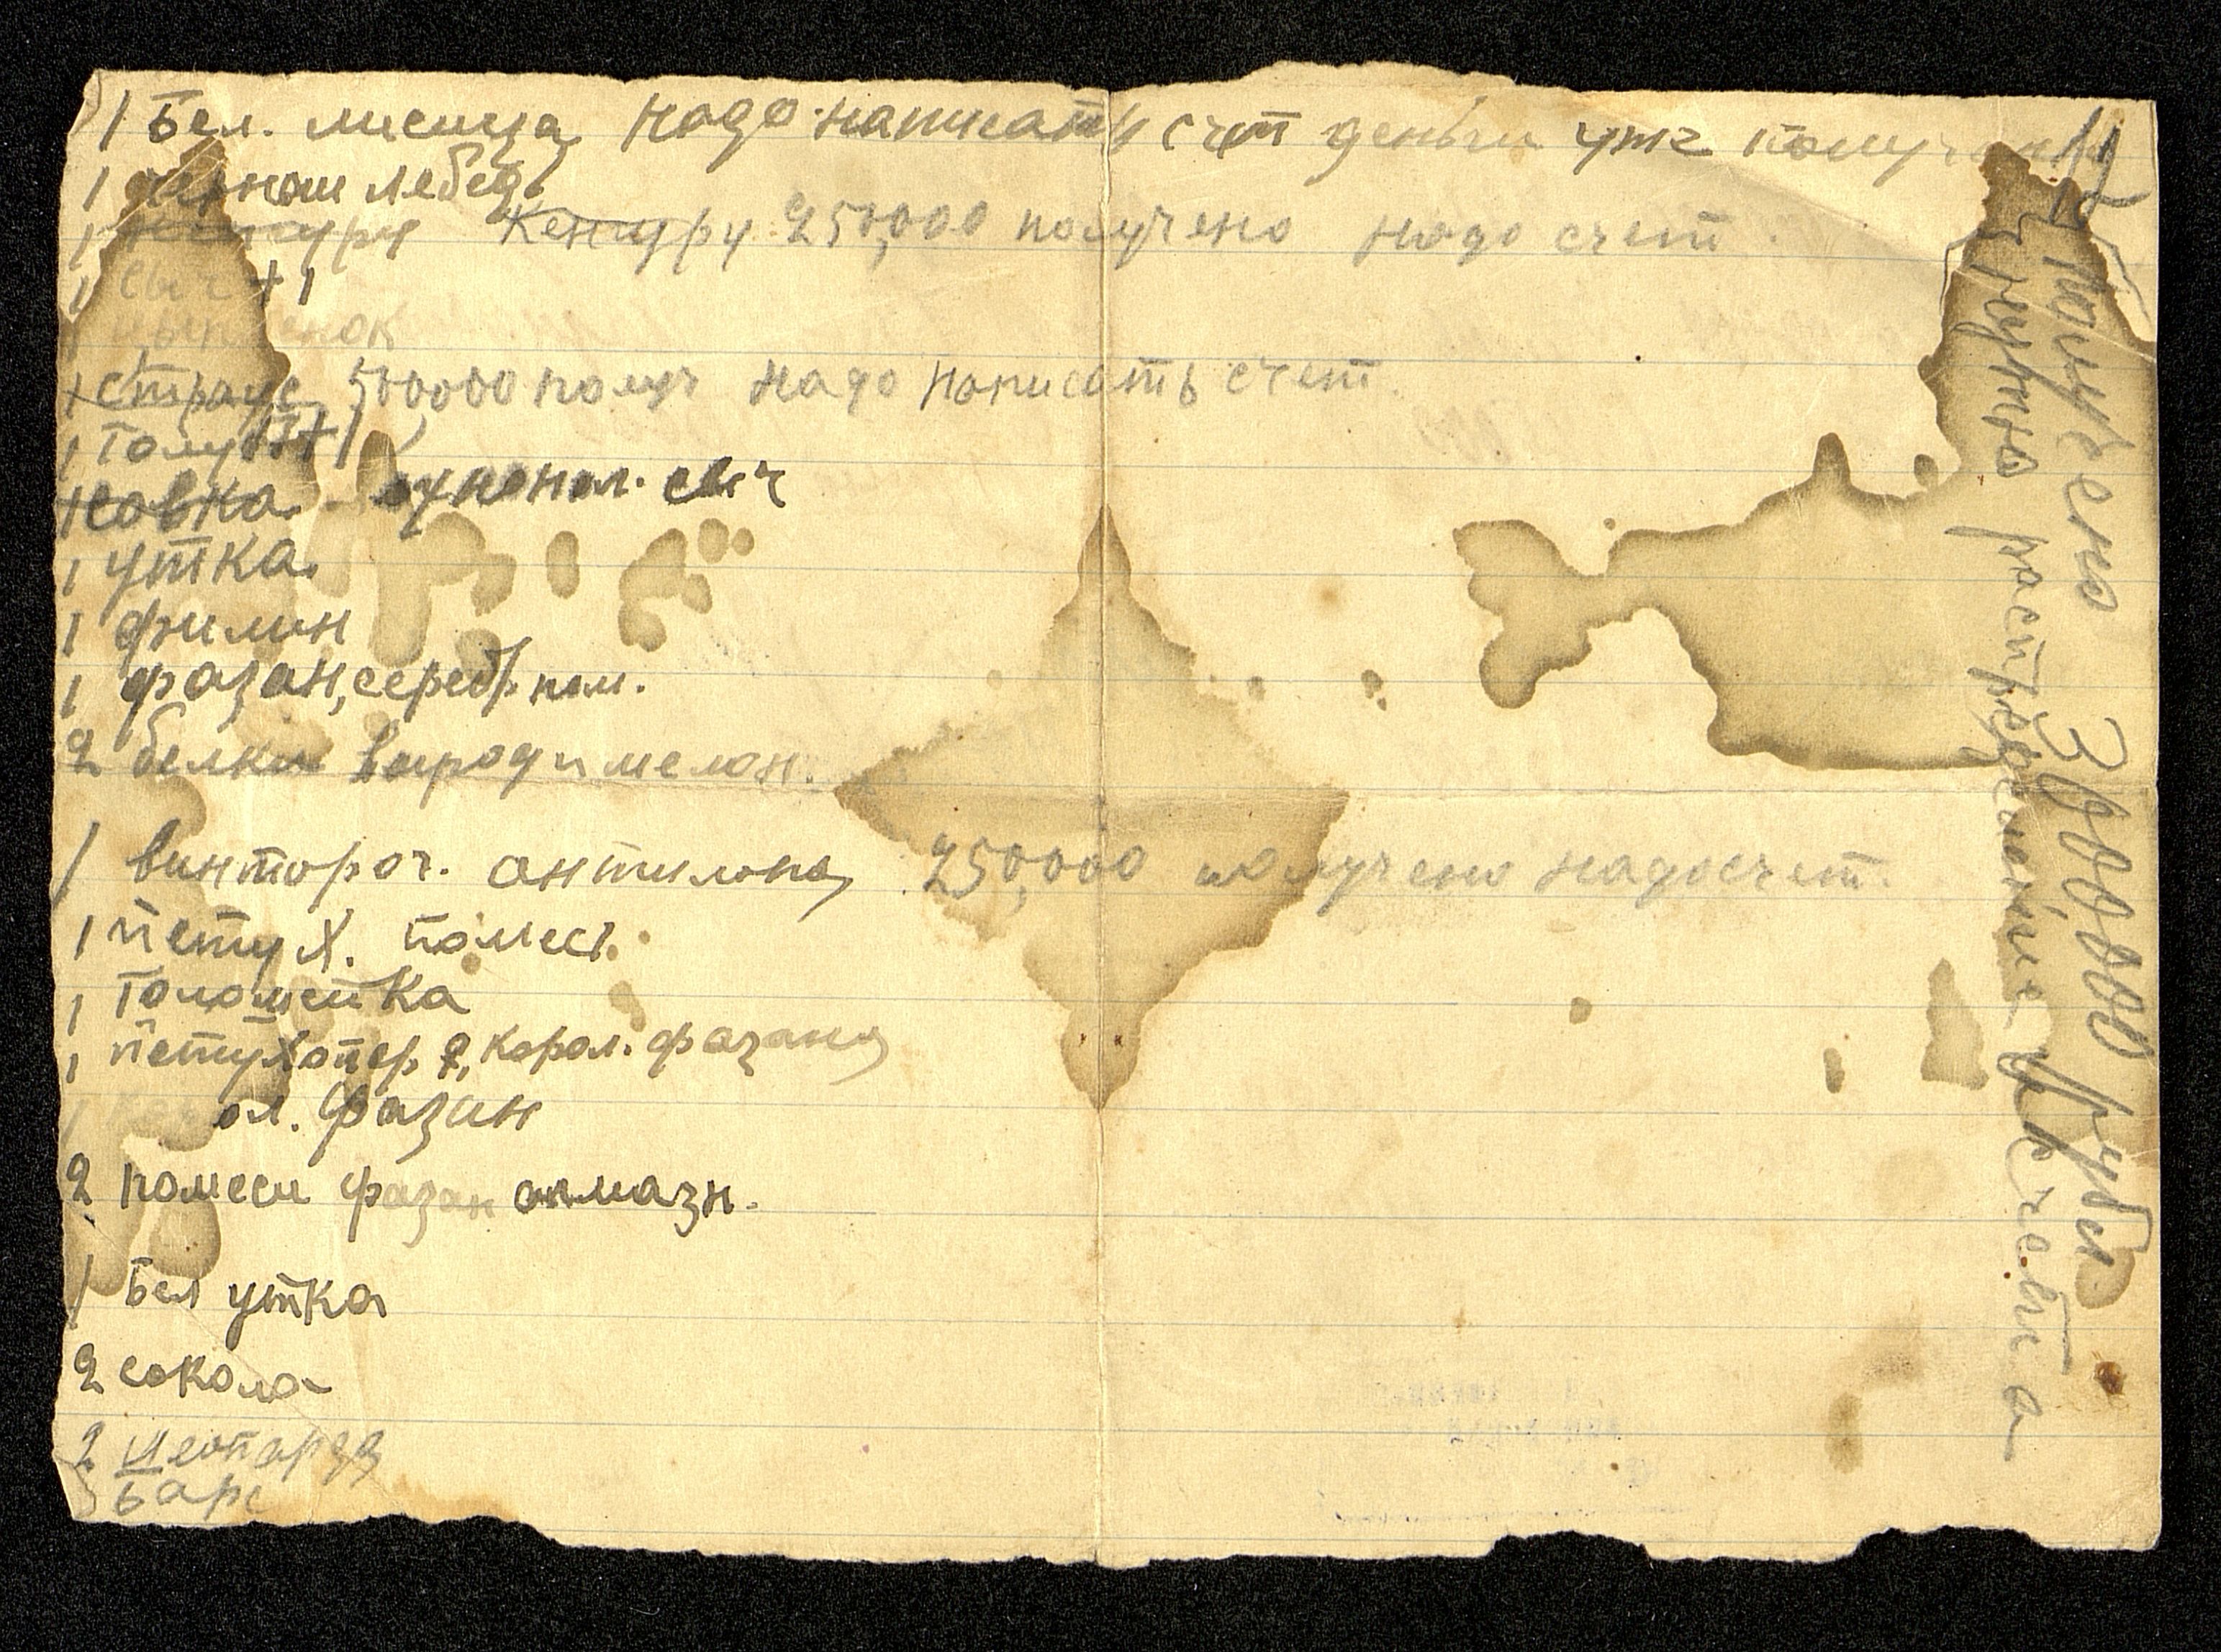 1 Бел. лисица надо написать счет деньги уже получены
1 черный лебедь
1 Кенгуру Кенгуру 250,000 получено надо счет.
1 сыч + 1
1
1 страус 500,000 получ надо написать счет.
1 Голу
1 совка. сыч
1 утка.
1 филин
1 фазан, серебр. пом.
2 белки
1 винторог. антилопа 250,000 получено надо счет.
1 петух. помесь
1 Голошейка
1 корол. фазана
1 Корол. Фазан
2 помеси фазан алмазн.
1 Бел утка
2 сокола
2 Леопарда
Барс
Получено 3000000 рубл
нужно распределение и счета